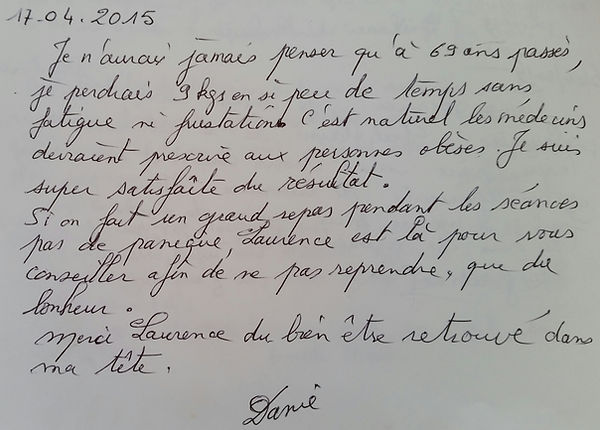 17.04.2015
Je n'aurai jamais penser qu'à 69 ans passés,
je perdrais 9 kgs en si peu de temps sans
fatigue ni frustation. C'est naturel les médecins
devraient prescrire aux personnes obèses. Je suis
super satisfaite du résultat.
Si on fait un grand repas pendant les séances
pas de panique, Laurence est là pour vous
conseiller afin de ne pas reprendre, que du
bonheur.
Merci Laurence du bien être retrouvé dans
ma tête.
Danie